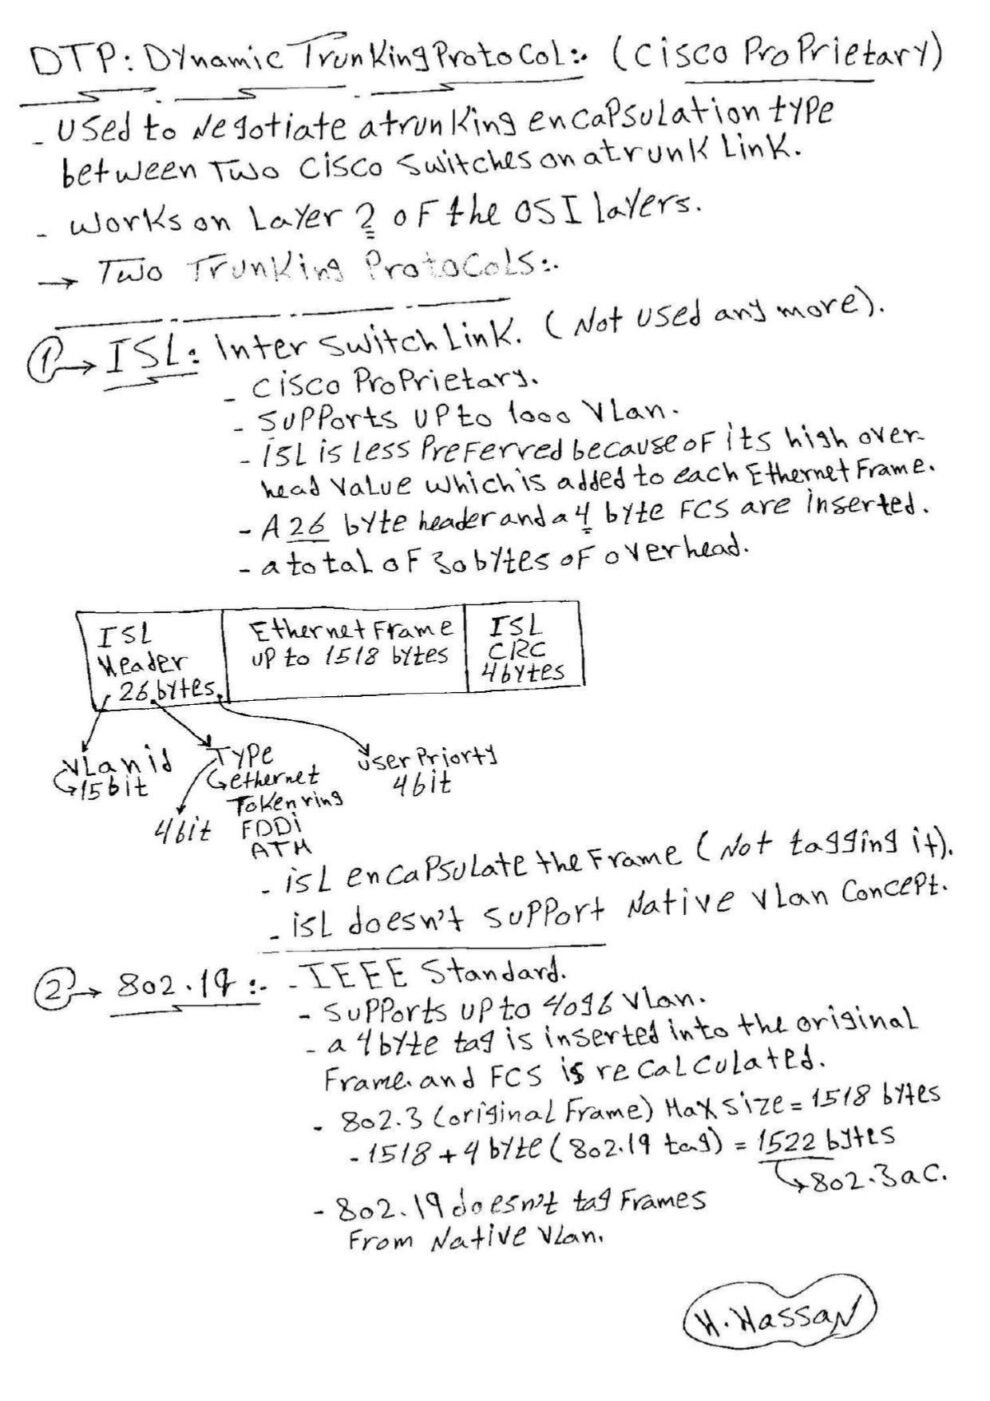 DTP: Dynamic Trunking Protocol:. (Cisco Proprietary)
- Used to Negotiate a trunking encapsulation type
between Two Cisco Switches on a trunk Link.
- Works on Layer 2 of the OSI layers.
→ Two Trunking Protocols:.
① → ISL: Inter Switch Link. (Not used any more).
- Cisco Proprietary.
- Supports up to 1000 Vlan.
- ISL is Less Preferred because of its high over-
head value which is added to each Ethernet Frame.
- A 26 byte header and a 4 byte FCS are inserted.
- a total of 30 bytes of overhead.
ISL
Header
26 bytes
Ethernet Frame
up to 1518 bytes
ISL
CRC
4 bytes
VLan id
15 bit
Type
ethernet
Token ring
FDDi
ATM
4 bit
User Priorty
4 bit
- isL encapsulate the Frame (Not tagging it).
- isL doesn't support Native vlan Concept.
② → 802.1q:. - IEEE Standard.
- Supports up to 4096 Vlan.
- a 4 byte tag is inserted into the original
Frame and FCS is recalculated.
- 802.3 (original Frame) Max size = 1518 bytes
- 1518 + 4 byte (802.1q tag) = 1522 bytes
802.3ac.
- 802.1q doesn't tag Frames
From Native Vlan.
H. Hassan